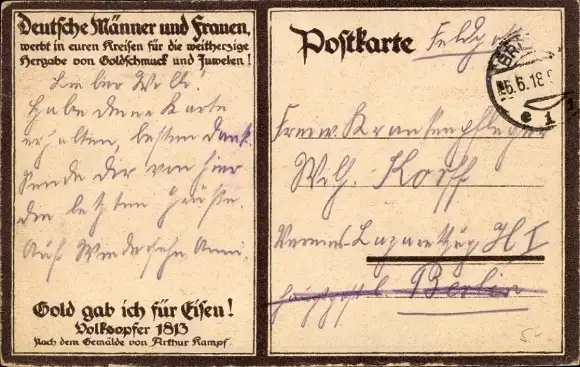 Deutsche Männer und Frauen,
werbt in euren Kreisen für die weitherzige
Hergabe von Goldschmuck und Juwelen!
Lieber Willi!
Habe deine Karte
erhalten, besten Dank.
Sende dir von hier
die letzten Grüße.
Auf Wiedersehn
Gold gab ich für Eisen!
Volksopfer 1813
Nach dem Gemälde von Arthur Kampf.
Postkarte
Feldpost
26.6.18
e 1
Freiw. Krankenpfleger
Wilh. Korff
Vereins-Lazarettzug H I
Berlin
5-